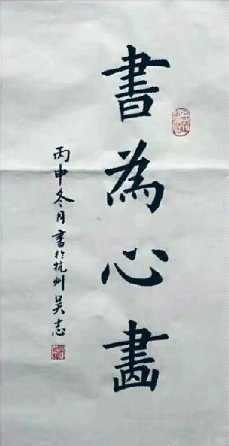 書為心畫
丙申冬月書於杭州吳志